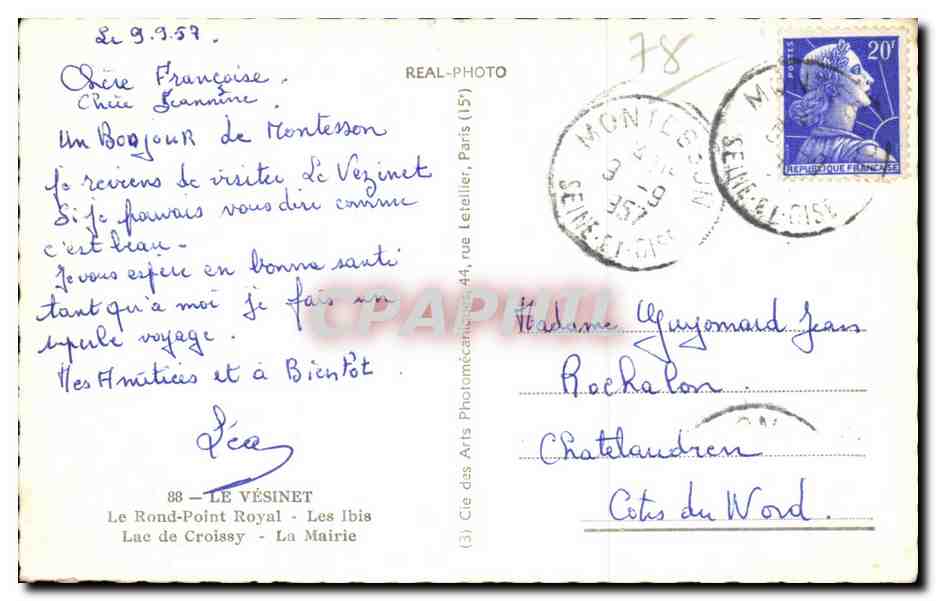 Le 9.9.57.
Chère Françoise.
Chère Jeannine.
Un Bonjour de Montesson
Je reviens de visiter Le Vezinet
Si je pouvais vous dire comme
c'est beau -
Je vous espère en bonne santé
tant qu'à moi je fais un
superbe voyage.
Mes Amitiées et à Bientôt.
Léa
88 — LE VÉSINET
Le Rond-Point Royal - Les Ibis
Lac de Croissy - La Mairie
REAL-PHOTO
(3) Cie des Arts Photomécaniques, 44, rue Letellier, Paris (15e)
78
POSTES
20F
REPUBLIQUE FRANÇAISE
MONTESSON
SEINE-ET-OISE
SEINE-ET-OISE
CPAPHIL
Madame Guyomard Jean
Rochalon.
Chatelaudren
Côtes du Nord.